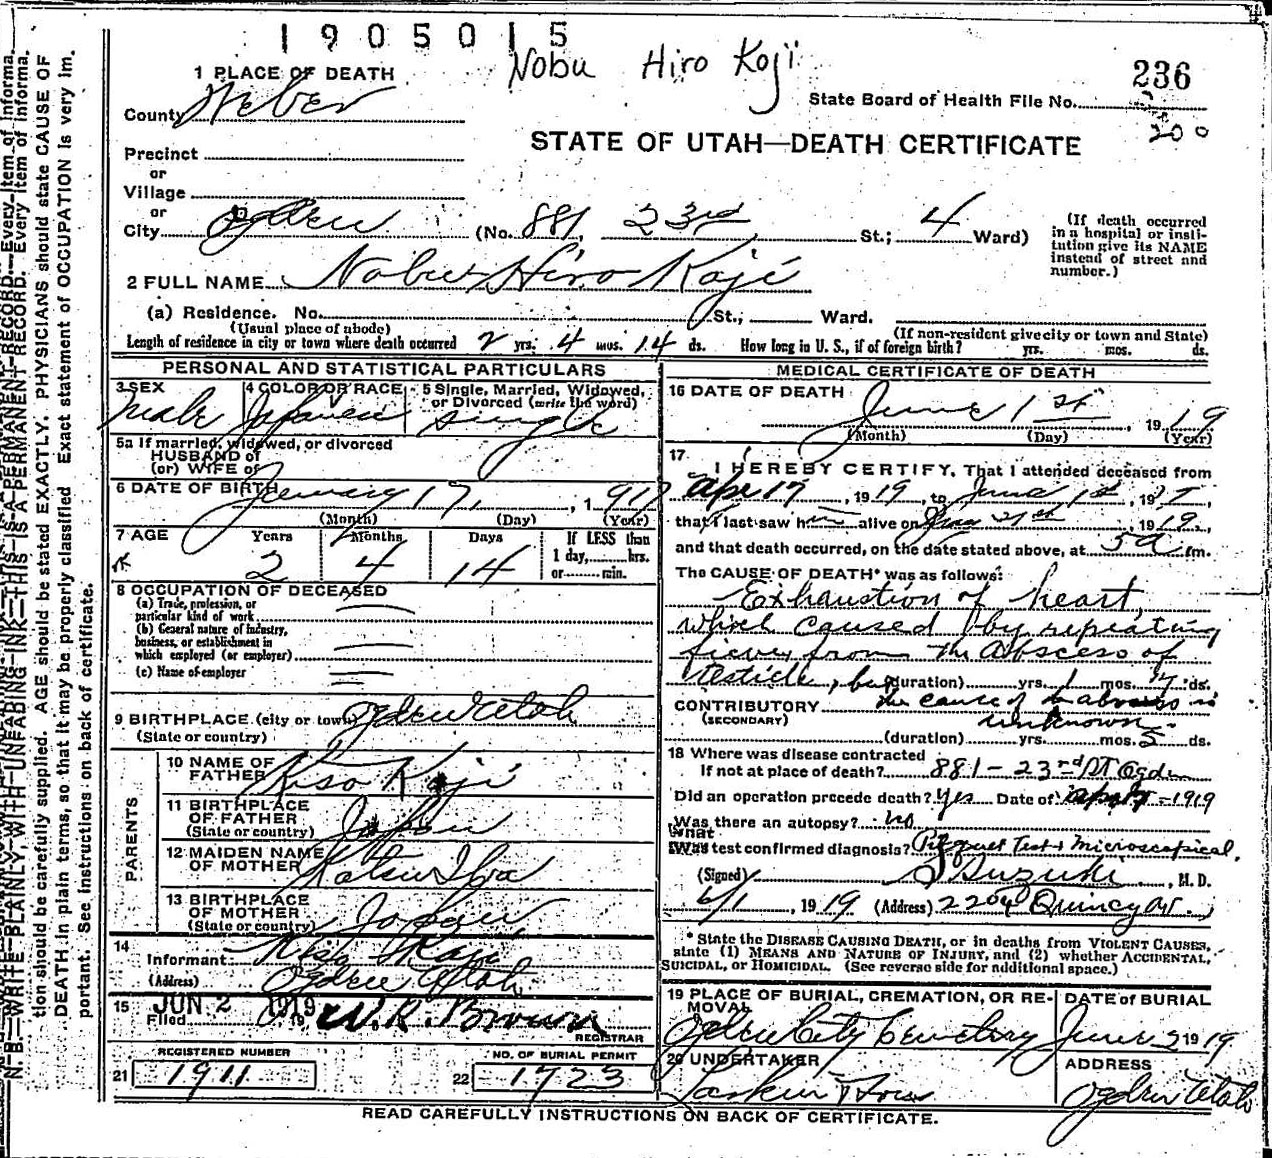 1905015
Nobu Hiro Koji
236
1 PLACE OF DEATH
County Weber
State Board of Health File No.
200
STATE OF UTAH—DEATH CERTIFICATE
Precinct
or
Village
or
City Ogden (No. 881, 23rd St.; 4 Ward)
(If death occurred in a hospital or institution give its NAME instead of street and number.)
2 FULL NAME Nobu Hiro Koji
(a) Residence. No. St., Ward.
(Usual place of abode) (If non-resident give city or town and State)
Length of residence in city or town where death occurred 2 yrs. 4 mos. 14 ds. How long in U. S., if of foreign birth? yrs. mos. ds.
PERSONAL AND STATISTICAL PARTICULARS
3 SEX 4 COLOR OR RACE 5 Single, Married, Widowed, or Divorced (write the word)
male Japanese single
5a If married, widowed, or divorced
HUSBAND of
(or) WIFE of
6 DATE OF BIRTH January 17, 1917
(Month) (Day) (Year)
7 AGE Years Months Days If LESS than
2 4 14 1 day, hrs.
or min.
8 OCCUPATION OF DECEASED
(a) Trade, profession, or
particular kind of work
(b) General nature of industry,
business, or establishment in
which employed (or employer)
(c) Name of employer
9 BIRTHPLACE (city or town) Ogden Utah
(State or country)
PARENTS
10 NAME OF
FATHER Kiso Koji
11 BIRTHPLACE
OF FATHER
(State or country) Japan
12 MAIDEN NAME
OF MOTHER Katsu
13 BIRTHPLACE
OF MOTHER
(State or country) Japan
14
Informant Koji
(Address) Ogden Utah
15 JUN 2 1919
Filed 19 W. R. Brown
REGISTRAR
REGISTERED NUMBER NO. OF BURIAL PERMIT
21 1911 22 1723
MEDICAL CERTIFICATE OF DEATH
16 DATE OF DEATH
June 1st, 1919
(Month) (Day) (Year)
17
I HEREBY CERTIFY, That I attended deceased from
Apr 17, 1919, to June 1st, 19
that I last saw him alive on 1919,
and that death occurred, on the date stated above, at 5 a m.
The CAUSE OF DEATH* was as follows:
Exhaustion of heart,
which caused by repeating
fiever from the Abscess of
testicle, but (duration) yrs. 1 mos. 7 ds.
CONTRIBUTORY the cause of to abscess is
(SECONDARY) unknown
(duration) yrs. mos. 5 ds.
18 Where was disease contracted
If not at place of death? 881-23rd St Ogden
Did an operation precede death? Yes Date of Apr 17-1919
Was there an autopsy? no
What
Was test confirmed diagnosis? Pirquet Test & Microscopical.
(Signed) S Suzuki, M. D.
6/1, 1919 (Address) 2204 Quincy Av.,
* State the DISEASE CAUSING DEATH, or in deaths from VIOLENT CAUSES,
state (1) MEANS AND NATURE OF INJURY, and (2) whether ACCIDENTAL,
SUICIDAL, or HOMICIDAL. (See reverse side for additional space.)
19 PLACE OF BURIAL, CREMATION, OR RE- DATE of BURIAL
MOVAL
Ogden City Cemetery June 2 1919
20 UNDERTAKER ADDRESS
Larkin & Sons Ogden Utah
READ CAREFULLY INSTRUCTIONS ON BACK OF CERTIFICATE.
N. B.—WRITE PLANLY, WITH UNFADING INK—THIS IS A PERMANENT RECORD. Every item of informa-
tion should be carefully supplied. AGE should be stated EXACTLY. PHYSICIANS should state CAUSE OF
DEATH in plain terms, so that it may be properly classified Exact statement of OCCUPATION is very im-
portant. See instructions on back of certificate.